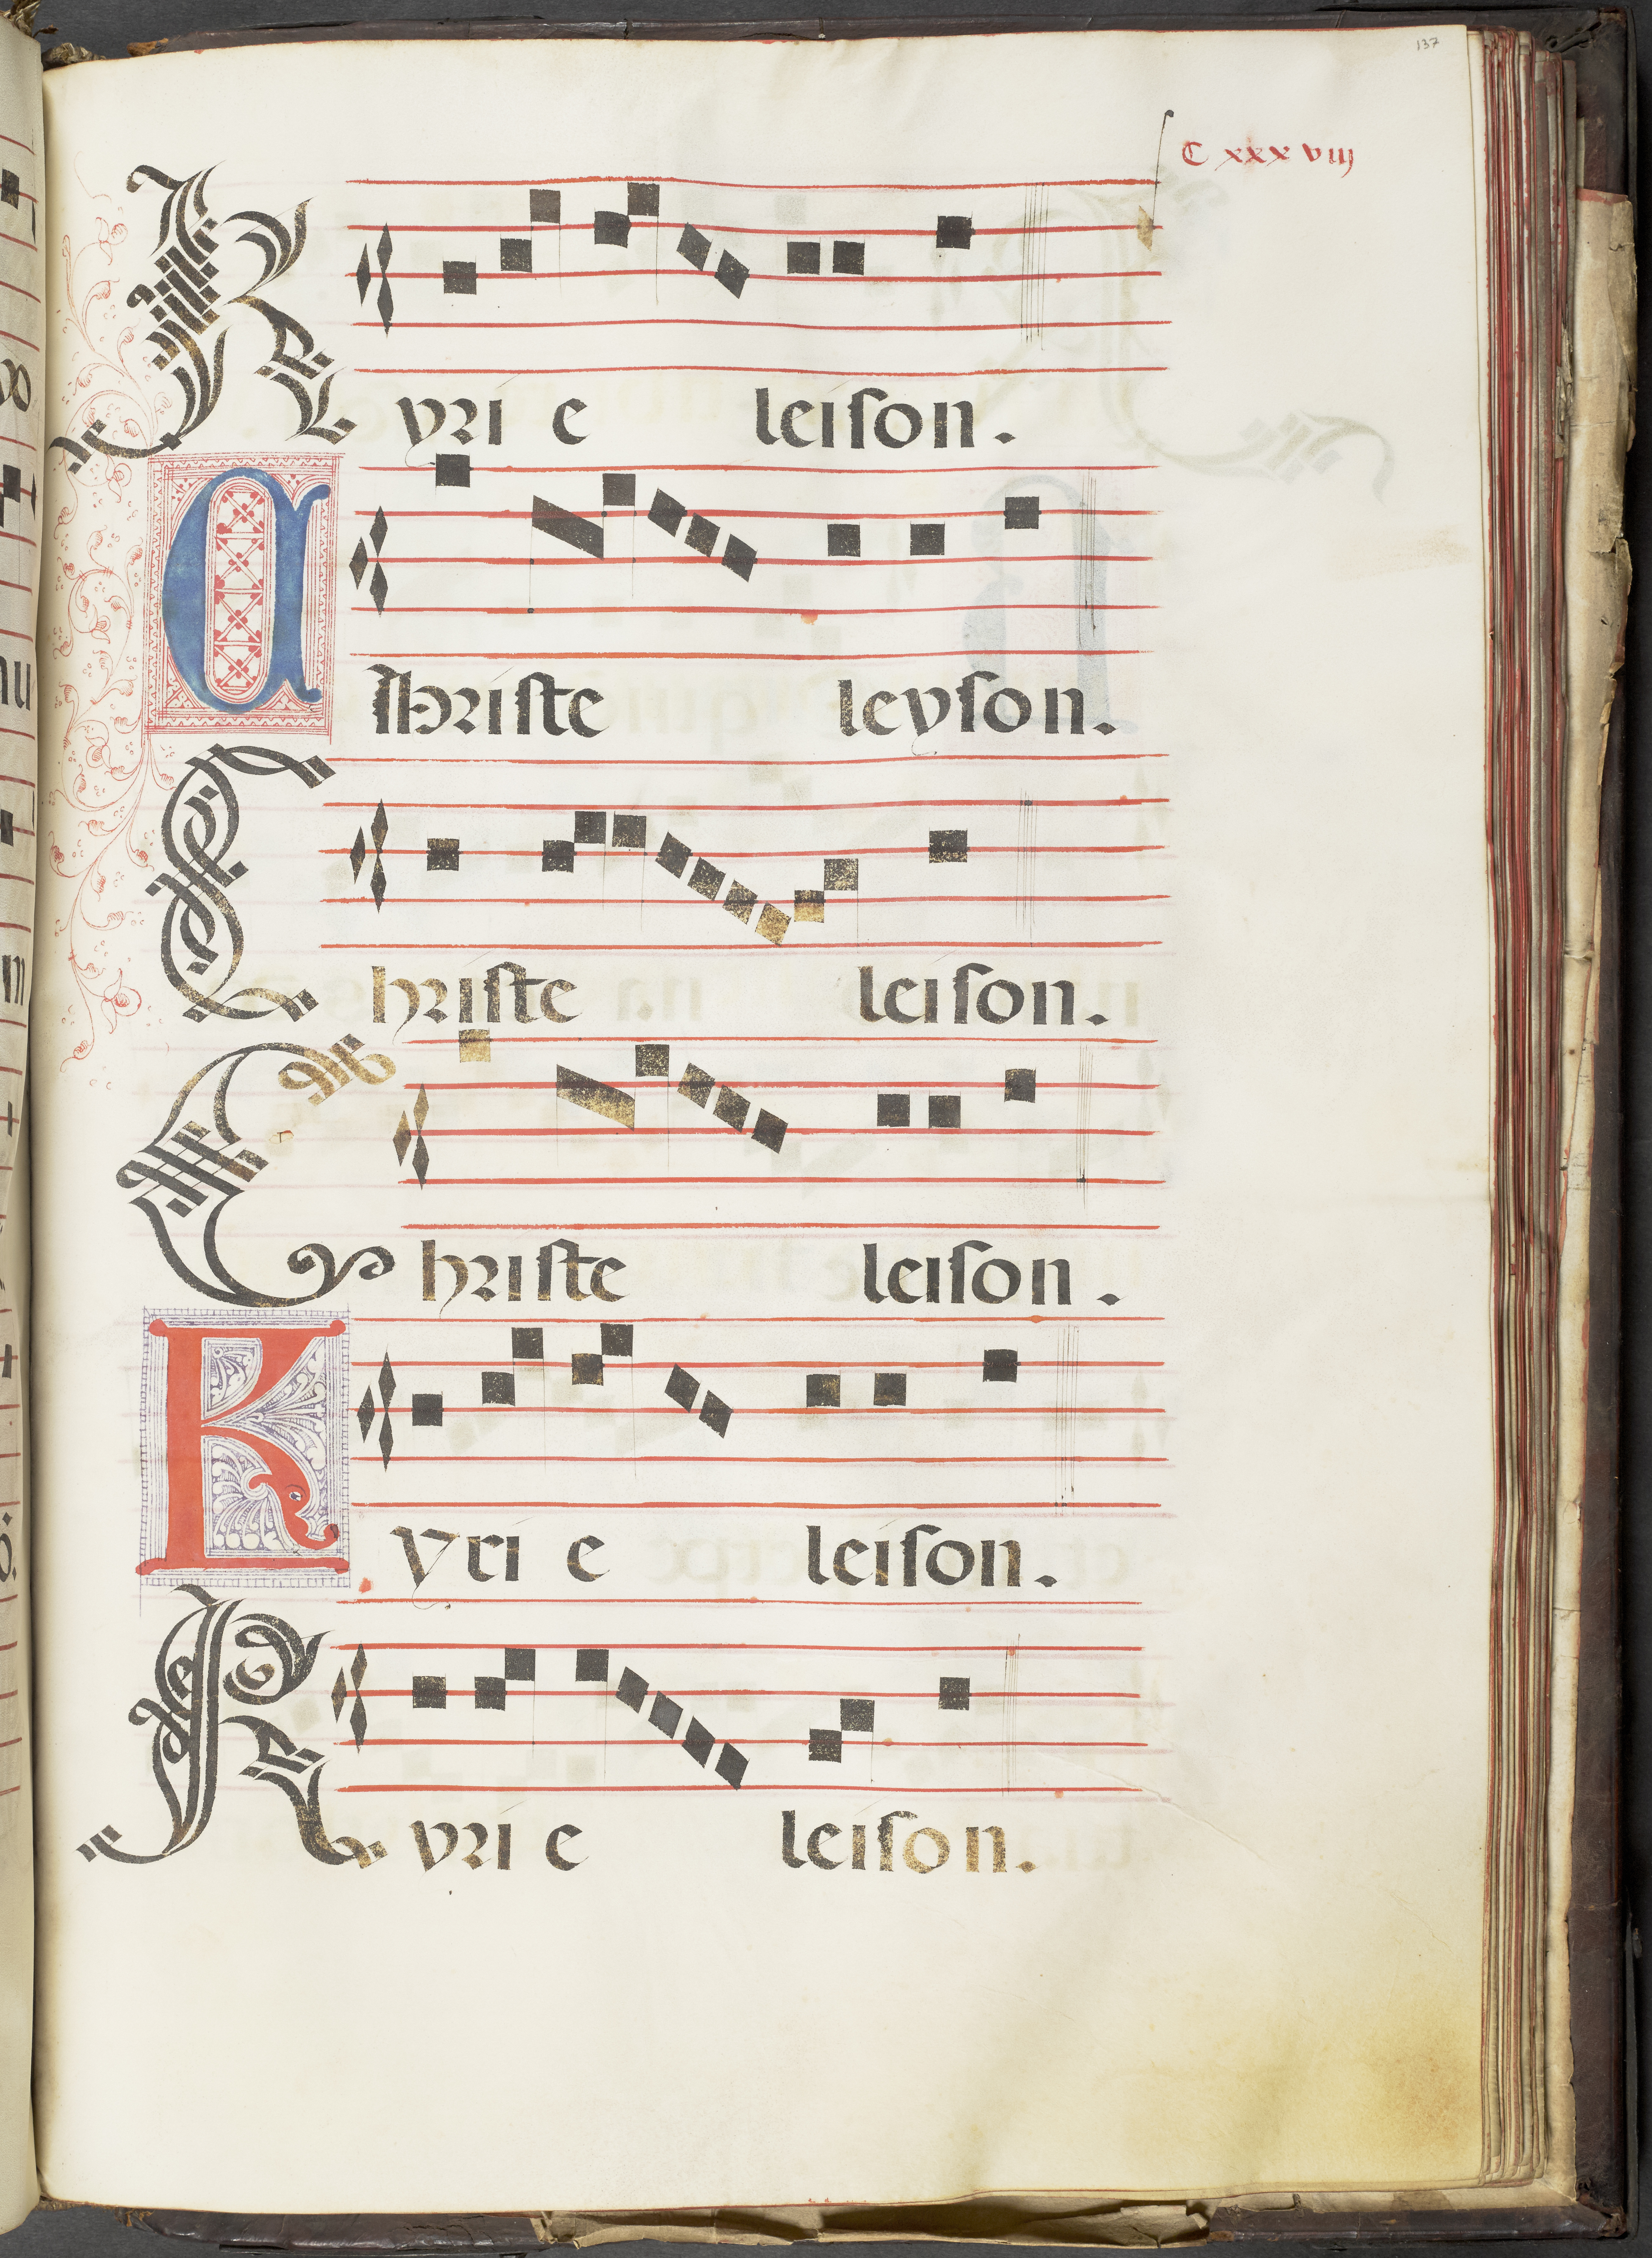 137
C xxx viij
Kyri e leiſon.
Chriſte leyſon.
Chriſte leiſon.
Chriſte leiſon.
Kyri e leiſon.
Kyri e leiſon.